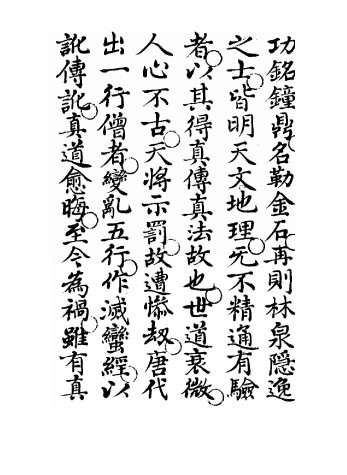 功銘鐘鼎名勒金石再則林泉隱逸
之士皆明天文地理无不精通有驗
者以其得真傳真法故也世道衰微
人心不古天將示罰故遭慘劫唐代
出一行僧者變亂五行作滅蠻經以
訛傳訛真道愈晦至今為禍雖有真